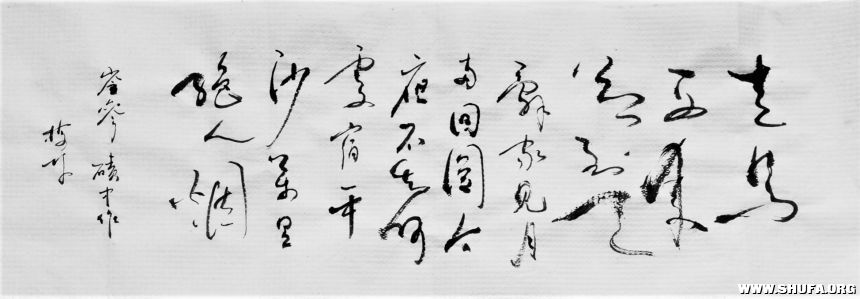 走馬
西來
欲到天
辭家見月
兩回圓今
夜不知何
處宿平
沙萬里
絕人烟
岑參磧中作
WWW.SHUFA.ORG